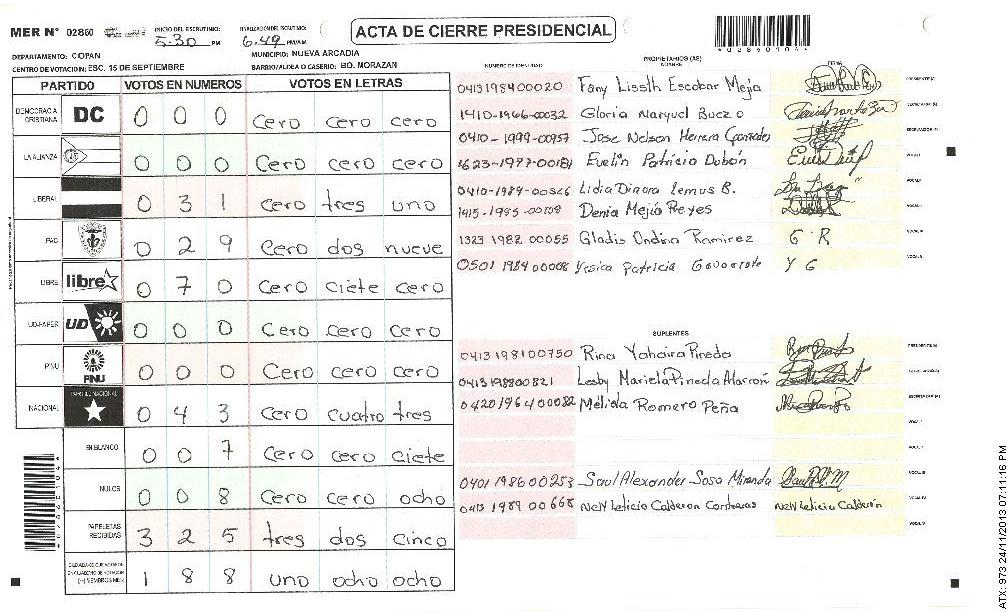 MER N° 02860
INICIO DEL ESCRUTINIO: 5:30 PM
FINALIZACION DEL ESCRUTINIO: 6:49 PM/AM
ACTA DE CIERRE PRESIDENCIAL
*02860104*
DEPARTAMENTO: COPAN
MUNICIPIO: NUEVA ARCADIA
CENTRO DE VOTACION: ESC. 15 DE SEPTIEMBRE
BARRIO/ALDEA O CASERIO: BO. MORAZAN
PARTIDO VOTOS EN NUMEROS VOTOS EN LETRAS
DEMOCRACIA CRISTIANA DC 0 0 0 Cero cero cero
LA ALIANZA 0 0 0 Cero cero cero
LIBERAL 0 3 1 Cero tres uno
PAC 0 2 9 Cero dos nueve
LIBRE libre 0 7 0 Cero ciete cero
UD-FAPER UD 0 0 0 Cero cero cero
PINU PINU 0 0 0 Cero cero cero
NACIONAL PARTIDO NACIONAL 0 4 3 Cero cuatro tres
EN BLANCO 0 0 7 Cero cero ciete
NULOS 0 0 8 Cero cero ocho
PAPELETAS RECIBIDAS 3 2 5 tres dos cinco
CIUDADANOS QUE VOTARON EN CUADERNO DE VOTACION (+) MIEMBROS MER 1 8 8 uno ocho ocho
PROPIETARIOS (AS)
NUMERO DE IDENTIDAD NOMBRE FIRMA
0413198400020 Fany Lissith Escobar Mejia PRESIDENTE(A)
1410-1966-00032 Gloria Maryuel Buezo SECRETARIO(A)
0410-1999-00957 Jose Nelson Herrera Gonzales ESCRUTADOR(A)
1623-1977-00181 Evelin Patricia Dubón VOCAL I
0410-1989-00526 Lidia Dinora Lemus B. VOCAL II
1415-1985-00108 Denia Mejía Reyes
1323 1982 00055 Gladis Ondina Ramirez G R
0501 1984 00008 Yesica Patricia Y G
SUPLENTES
0413 198100750 Rina Yahaira Pineda PRESIDENTE(A)
0413 198800821 Lesby Mariela Pineda Alarcón
0420196400082 Mélida Romero Peña
0401 198600253 Saul Alexander Sosa Miranda
0413 1989 00668 Nelly Leticia Calderon Contreras Nelly Leticia Calderón
ATX: 973 24/11/2013 07:11:16 PM